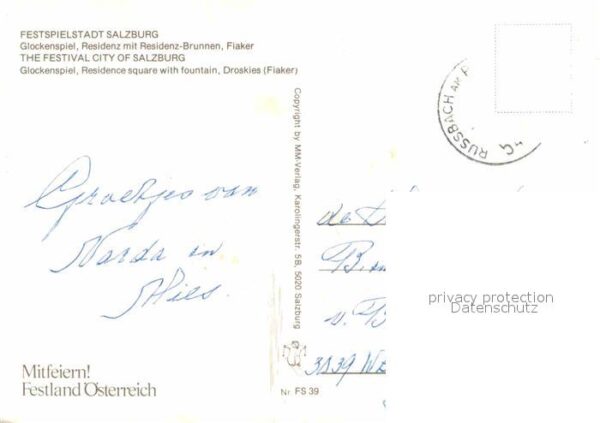 FESTSPIELSTADT SALZBURG
Glockenspiel, Residenz mit Residenz-Brunnen, Fiaker
THE FESTIVAL CITY OF SALZBURG
Glockenspiel, Residence square with fountain, Droskies (Fiaker)
RUSSBACH AM P
Groetjes van
Narda en
Mies.
Copyright by MM-Verlag, Karolingerstr. 5B, 5020 Salzburg
de
v. B
privacy protection
Datenschutz
Mitfeiern!
Festland Österreich
Nr. FS 39